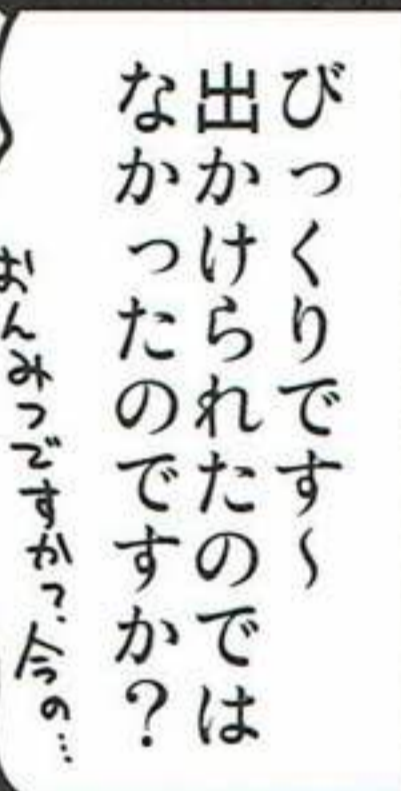 びっくりです～
出かけられたのでは
なかったのですか？
おんみつですか？今の…